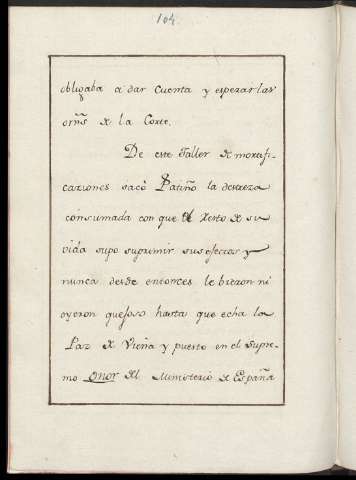 104.
obligaba a dar cuenta y esperar las
orñs de la Corte.
De este Taller de mortifi-
caziones sacò Patiño la destreza
consumada con que el resto de su
vida supo suprimir sus efectos y
nunca desde entonces le bieron ni
oyeron quejoso hasta que echa la
Paz de Viena y puesto en el supre-
mo onor del Ministerio de España